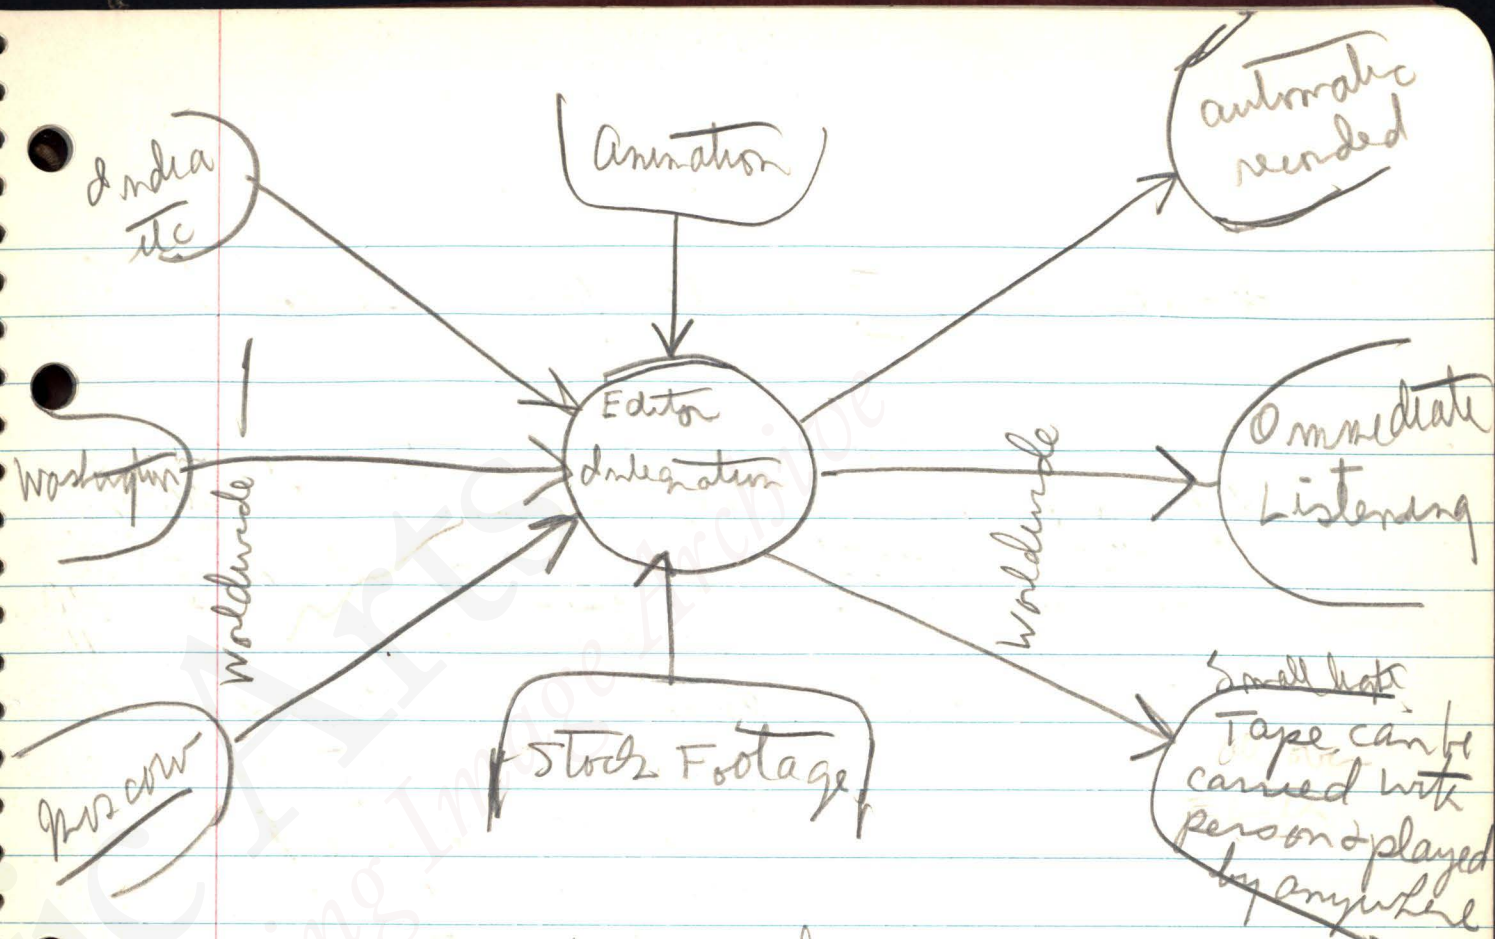 India
etc
Animation
automatic
recorded
Washington
Worldwide
Editor
Integration
Worldwide
Immediate
Listening
Moscow
Stock Footage
Small
Tape can be
carried with
person & played
by anywhere
Arts
Image Archive